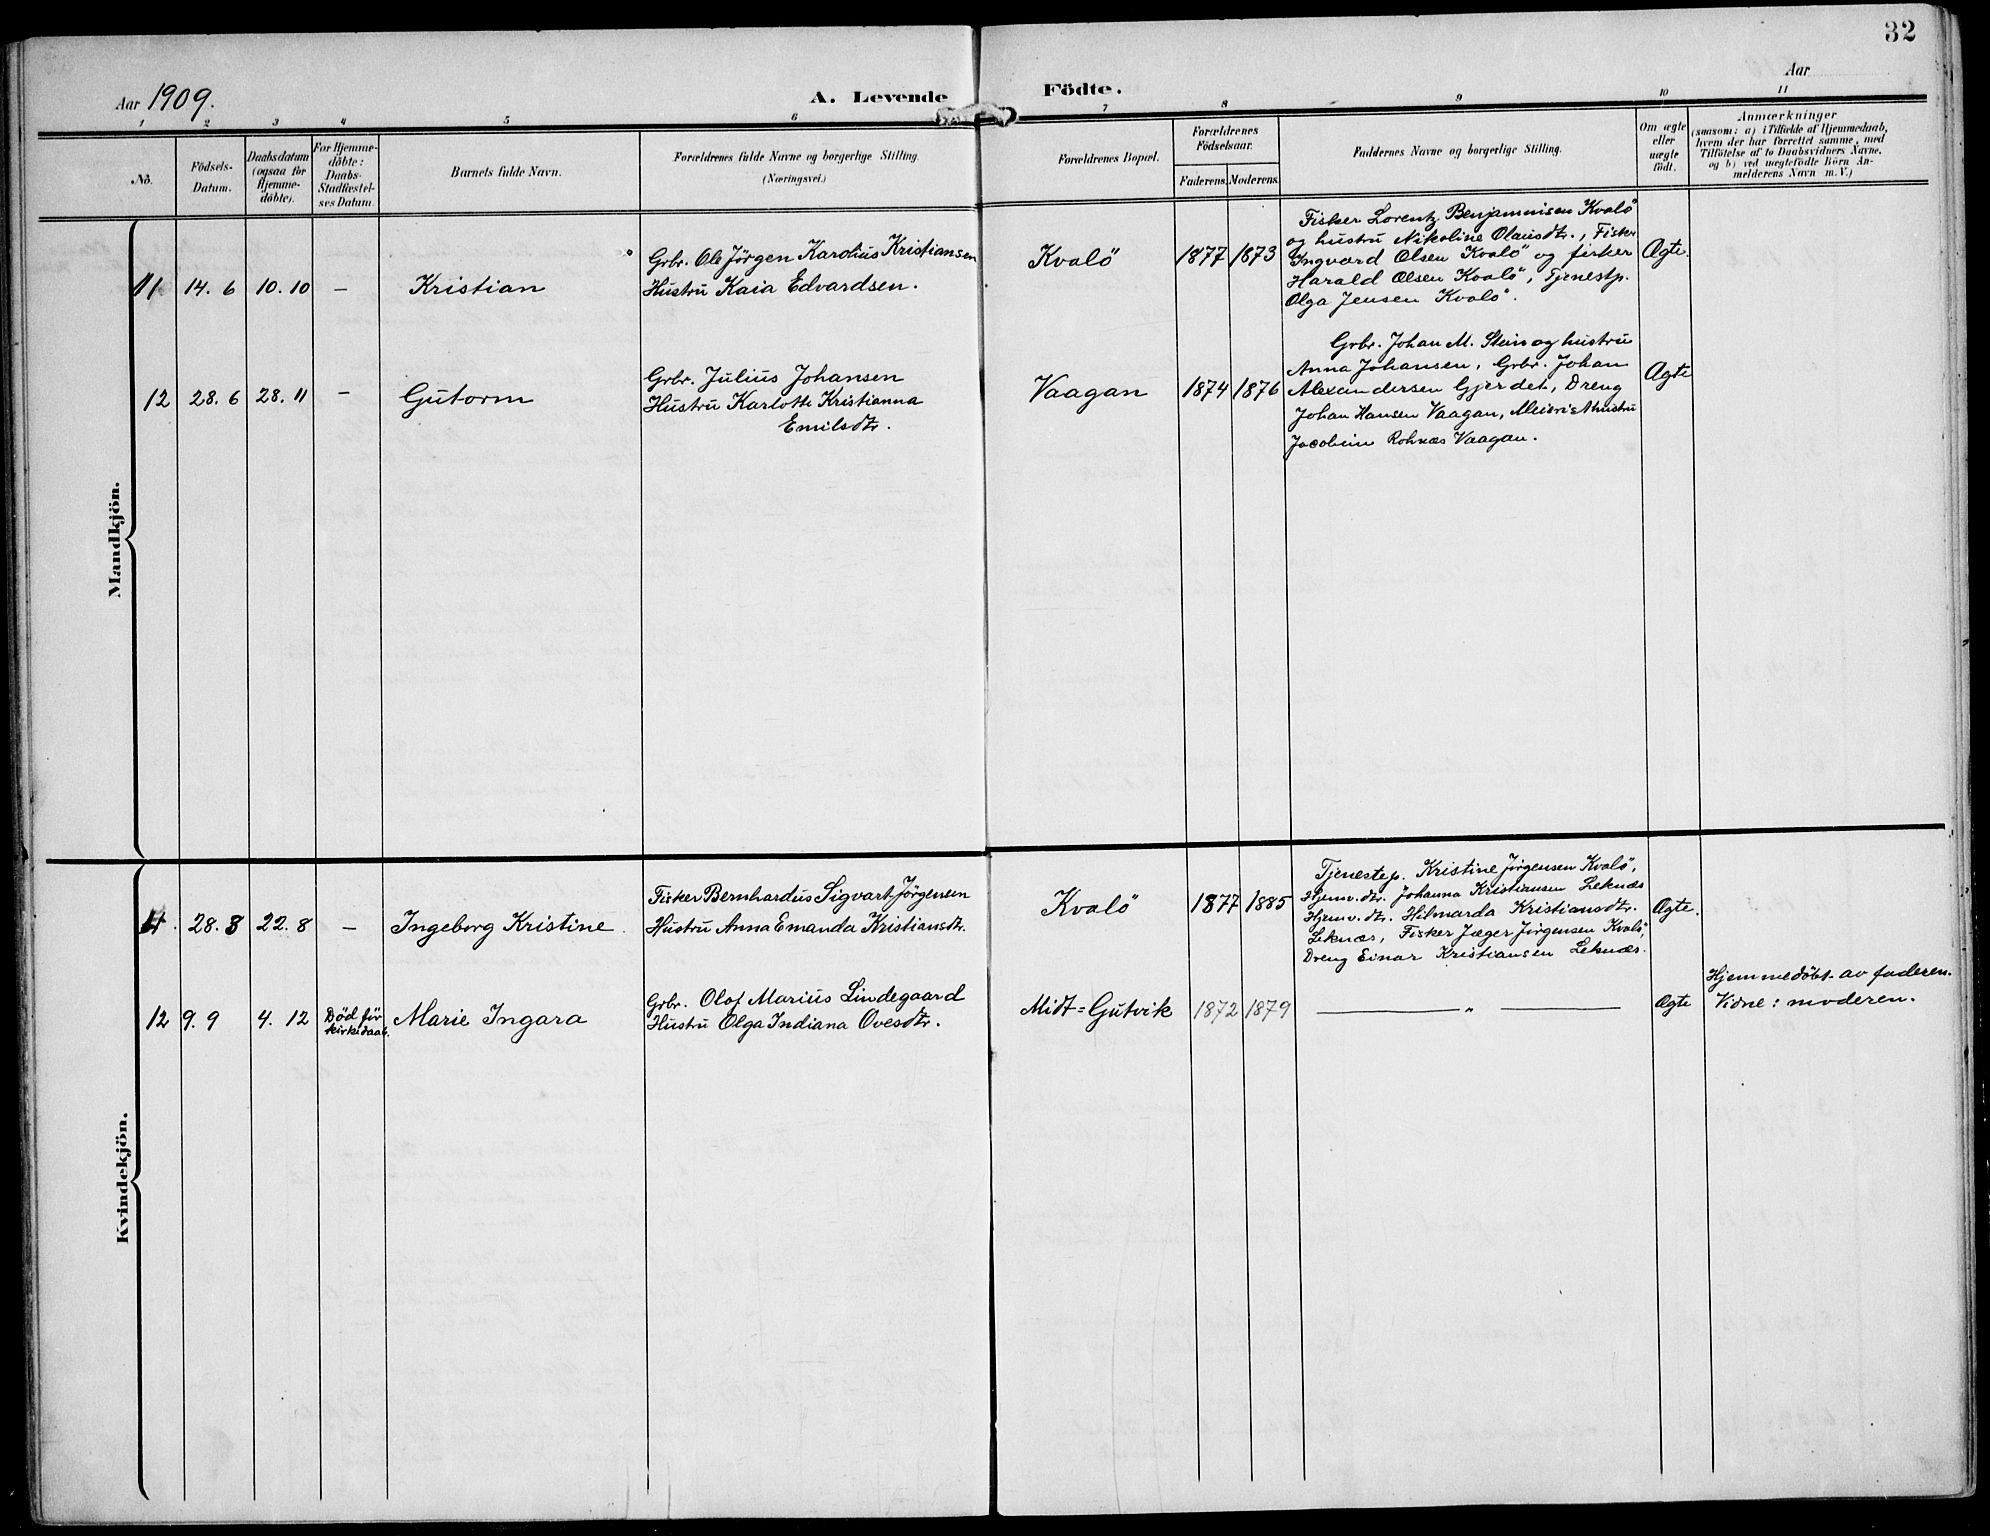 32
Aar 1909.
A. Levende
Födte.
Aar
1 2 3 4 5 6 7 8 9 10 11
No.
Födsels-
Datum.
Daabsdatum
(ogsaa for
Hjemme-
döbte).
For Hjemme-
döbte:
Daabs-
Stadfæstel-
ses Datum.
Barnets fulde Navn.
Forældrenes fulde Navne og borgerlige Stilling.
(Næringsvei.)
Forældrenes Bopæl.
Forældrenes
Födselsaar.
Faderens. Moderens.
Faddernes Navne og borgerlige Stilling.
Om ægte
eller
uægte
födt.
Anmærkninger
(saasom: a) i Tilfælde af Hjemmedaab,
hvem der har forrettet samme, med
Tilföielse af to Daabsvidners Navne.
og b) ved uægtefödte Börn An-
melderens Navn m. V.)
Mandkjön.
11 14. 6 10. 10 — Kristian
Grbr. Ole Jörgen Karolius Kristiansen
Hustru Kaia Edvardsen.
Kvalö 1877 1873
Fisker Lorentz Benjaminsen Kvalö
og hustru Nikoline Olausdtr., Fisker
Ingvard Olsen Kvalö og fisker
Harald Olsen Kvalö, Tjenestp.
Olga Jensen Kvalö.
Ægte.
12 28. 6 28. 11 — Gutorm
Grbr. Julius Johansen
Hustru Karlotte Kristianna
Emilsdtr.
Vaagan 1874 1876
Grbr. Johan M. Stein og hustru
Anna Johansen, Grbr. Johan
Alexandersen Gjerdet, Dreng
Johan Hansen Vaagan, Meieristhustru
Jacobine Rohnæs Vaagan.
Ægte
Kvindekjön.
11. 28. 3 22. 8 — Ingeborg Kristine.
Fisker Bernhardus Sigvart Jörgensen
Hustru Anna Emanda Kristiansdtr.
Kvalö 1877 1885
Tjenestep. Kristine Jörgensen Kvalö,
Hjemv. dtr. Johanna Kristiansen Leknæs
Hjemv. dtr. Hilmarda Kristiansdtr.
Leknæs, Fisker Jæger Jörgensen Kvalö,
Dreng Einar Kristiansen Leknæs.
Ægte.
12 9. 9 4. 12 Död för
kirkedaab.
Marie Ingara
Grbr. Olof Marius Lindegaard
Hustru Olga Indiana Ovesdtr.
Midt=Gutvik 1872 1879 — „ —
Ægte
Hjemmedöbt av faderen.
Vidne: moderen.